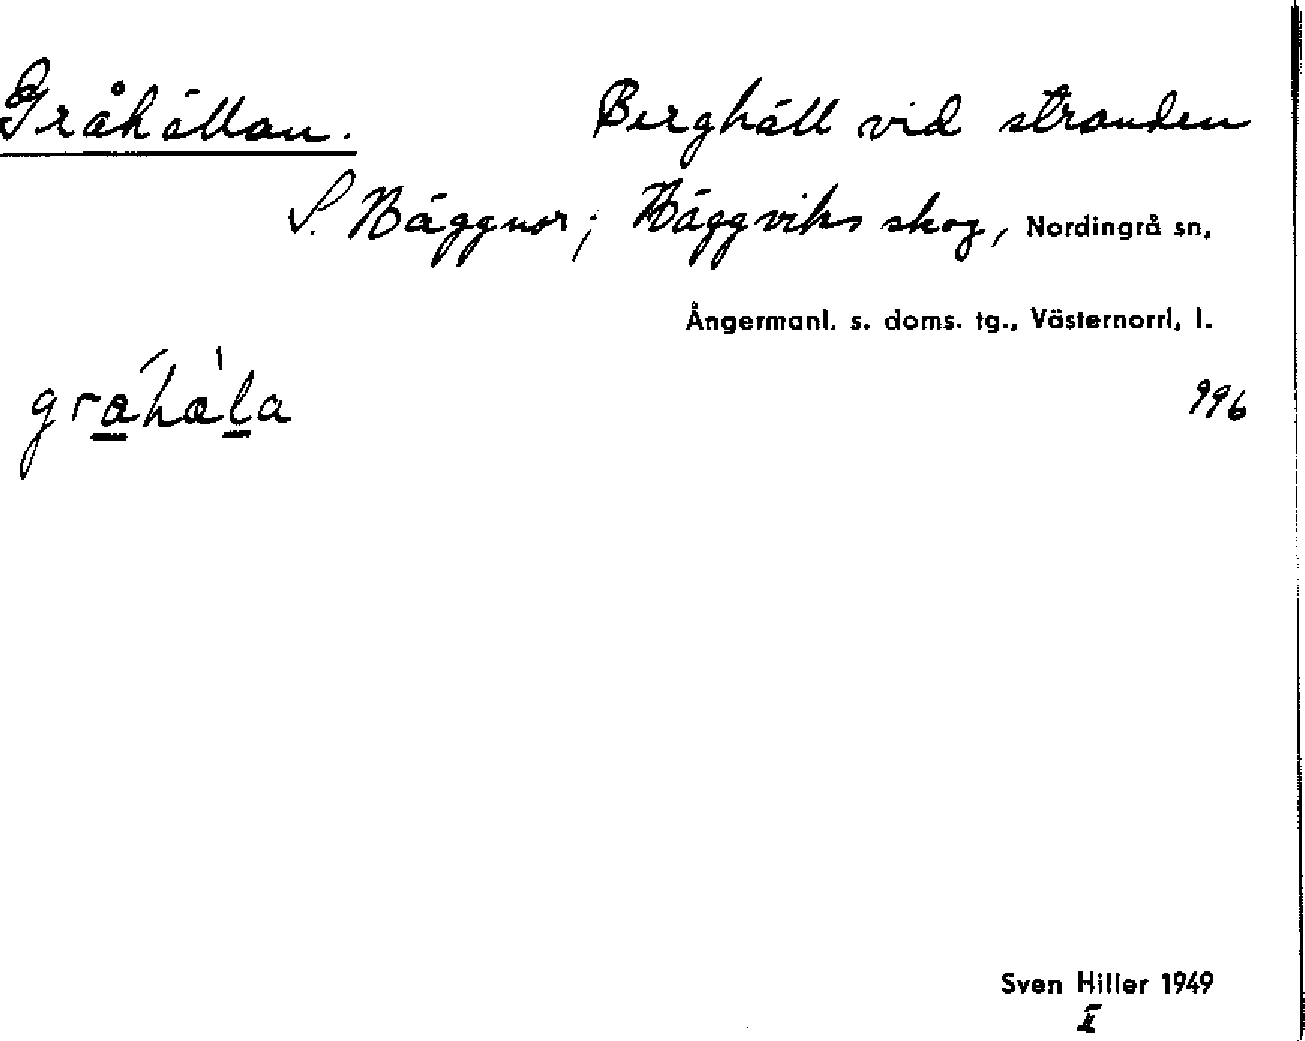 Gråhällan. Berghäll vid stranden
S. Häggnor; Häggviks skog, Nordingrå sn,
Ångermanl. s. doms. tg., Västernorrl. l.
996
Sven Hiller 1949
II